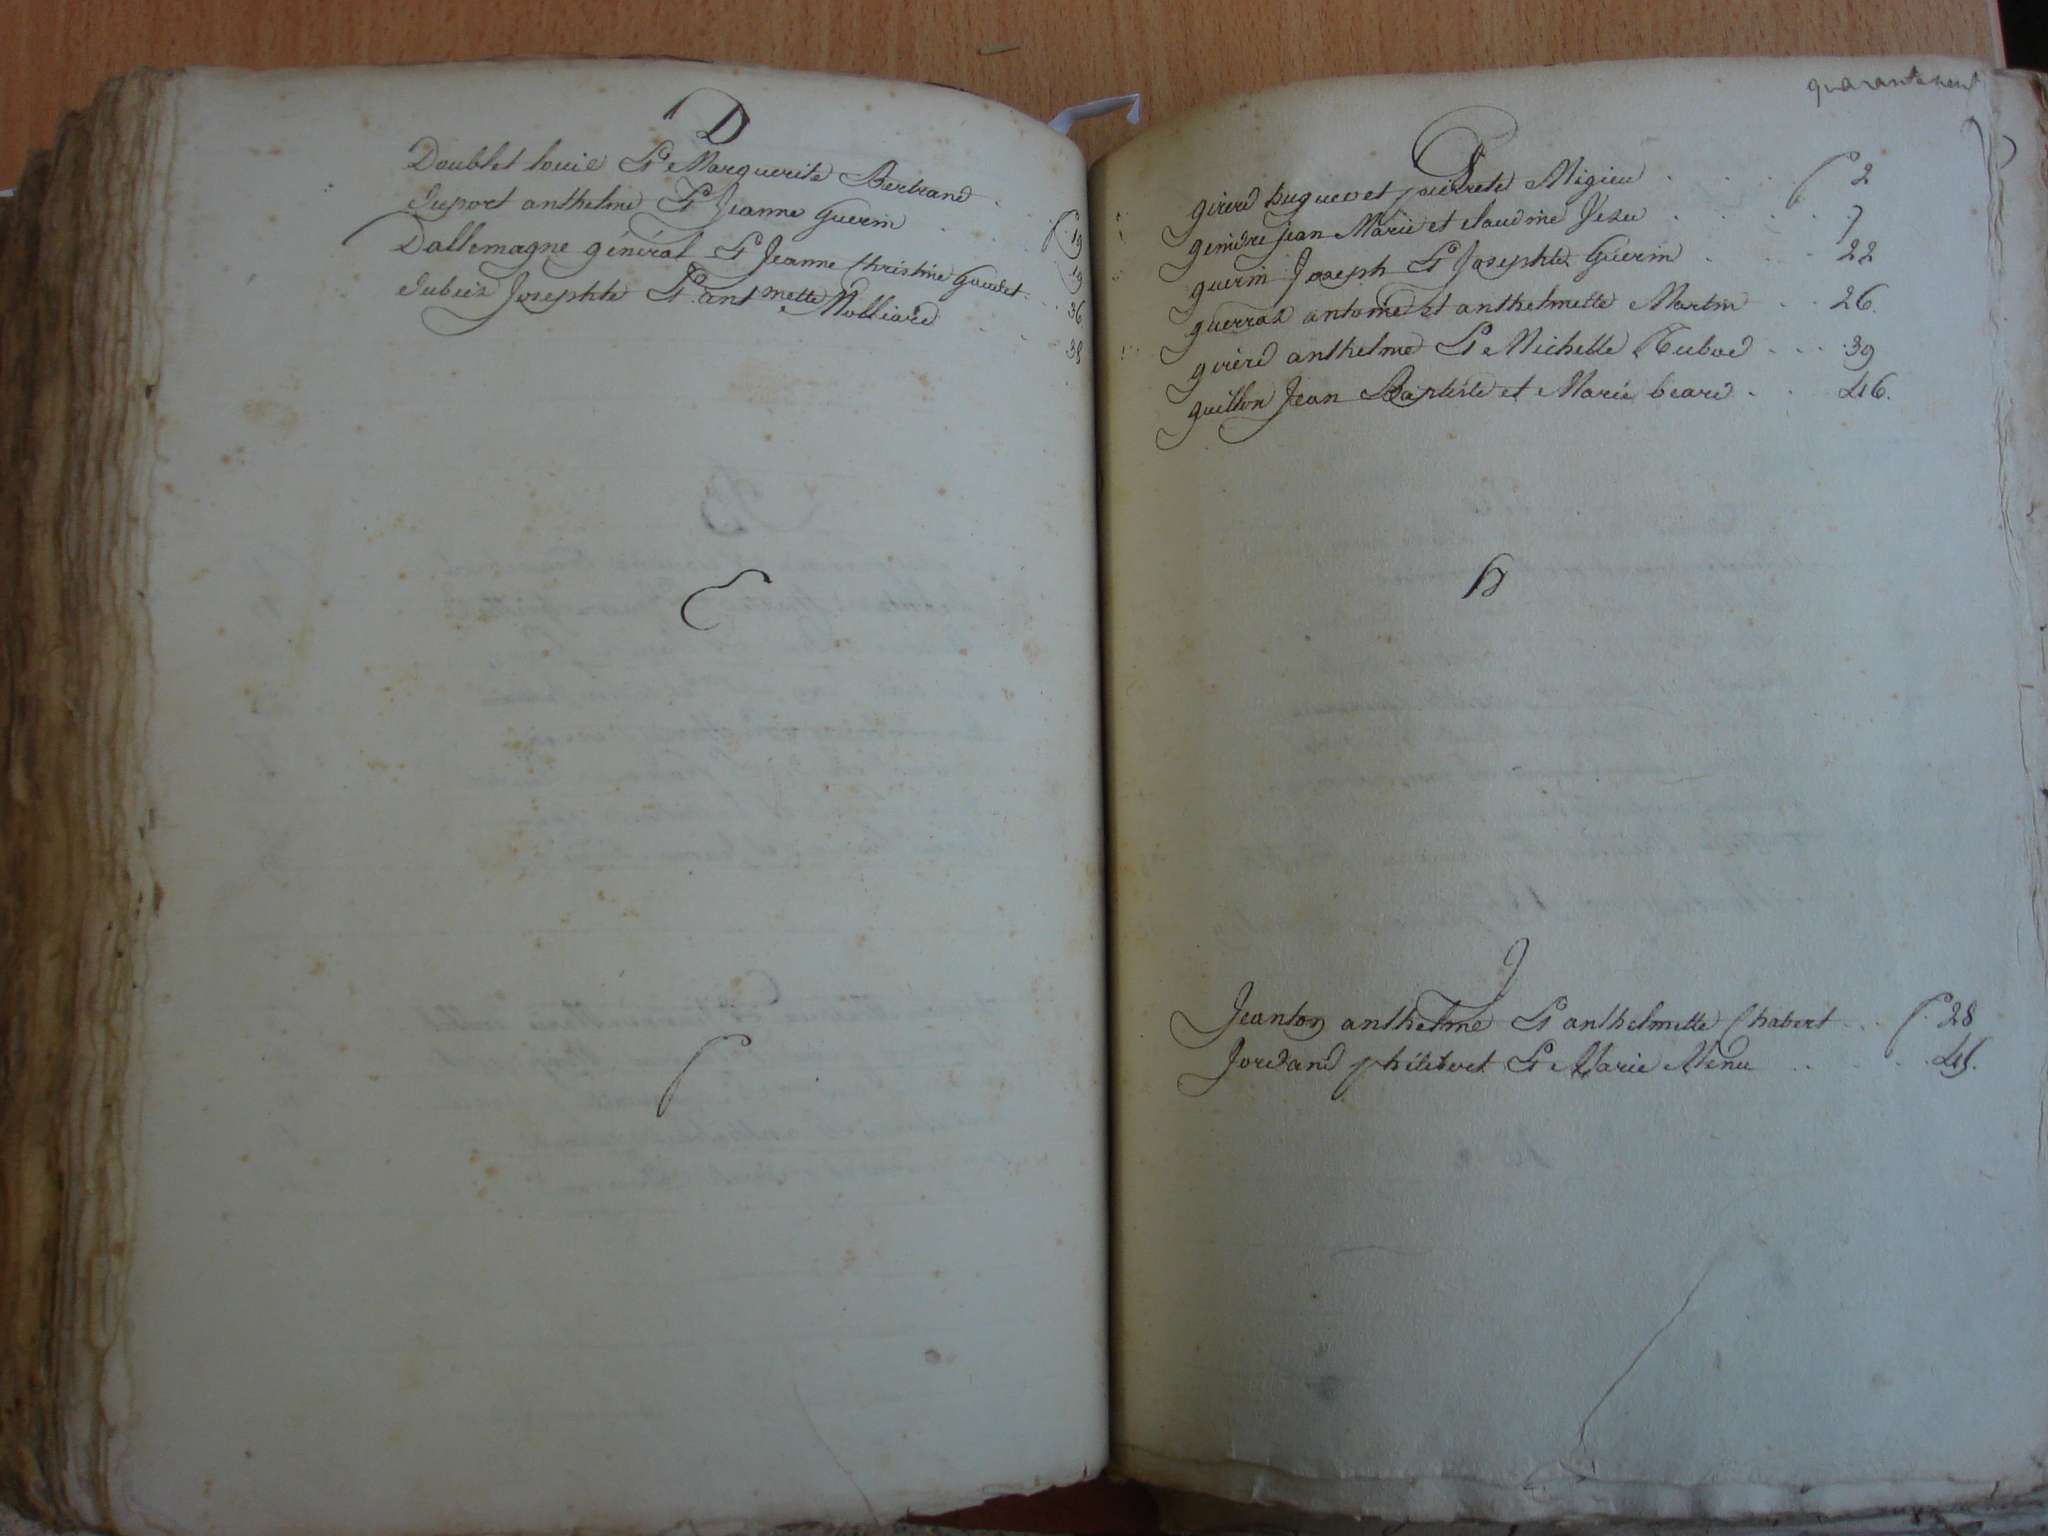 D
Doublet louis Et Marguerite Bertrand
duport anthelme Et Jeanne Guerin f 19
Dallemagne général Et Jeanne Christine Gueudet 19
dubiez Josephte Et antmette Molliard 36
38
E
f
quaranteneuf
G
girerd hugues et pierrete Migieu f 2
genidre Jean Marie et claudine 7
guerin Joseph Et Josephte Guerin 22
guerraz antoine Et anthelmette Martin 26.
girerd anthelme Et Michelle 39
guillon Jean Baptiste et Marie beard 46.
h
J
Jeanton anthelme Et anthelmette Chabert f 28
Jordand philibert Et Marie Menu